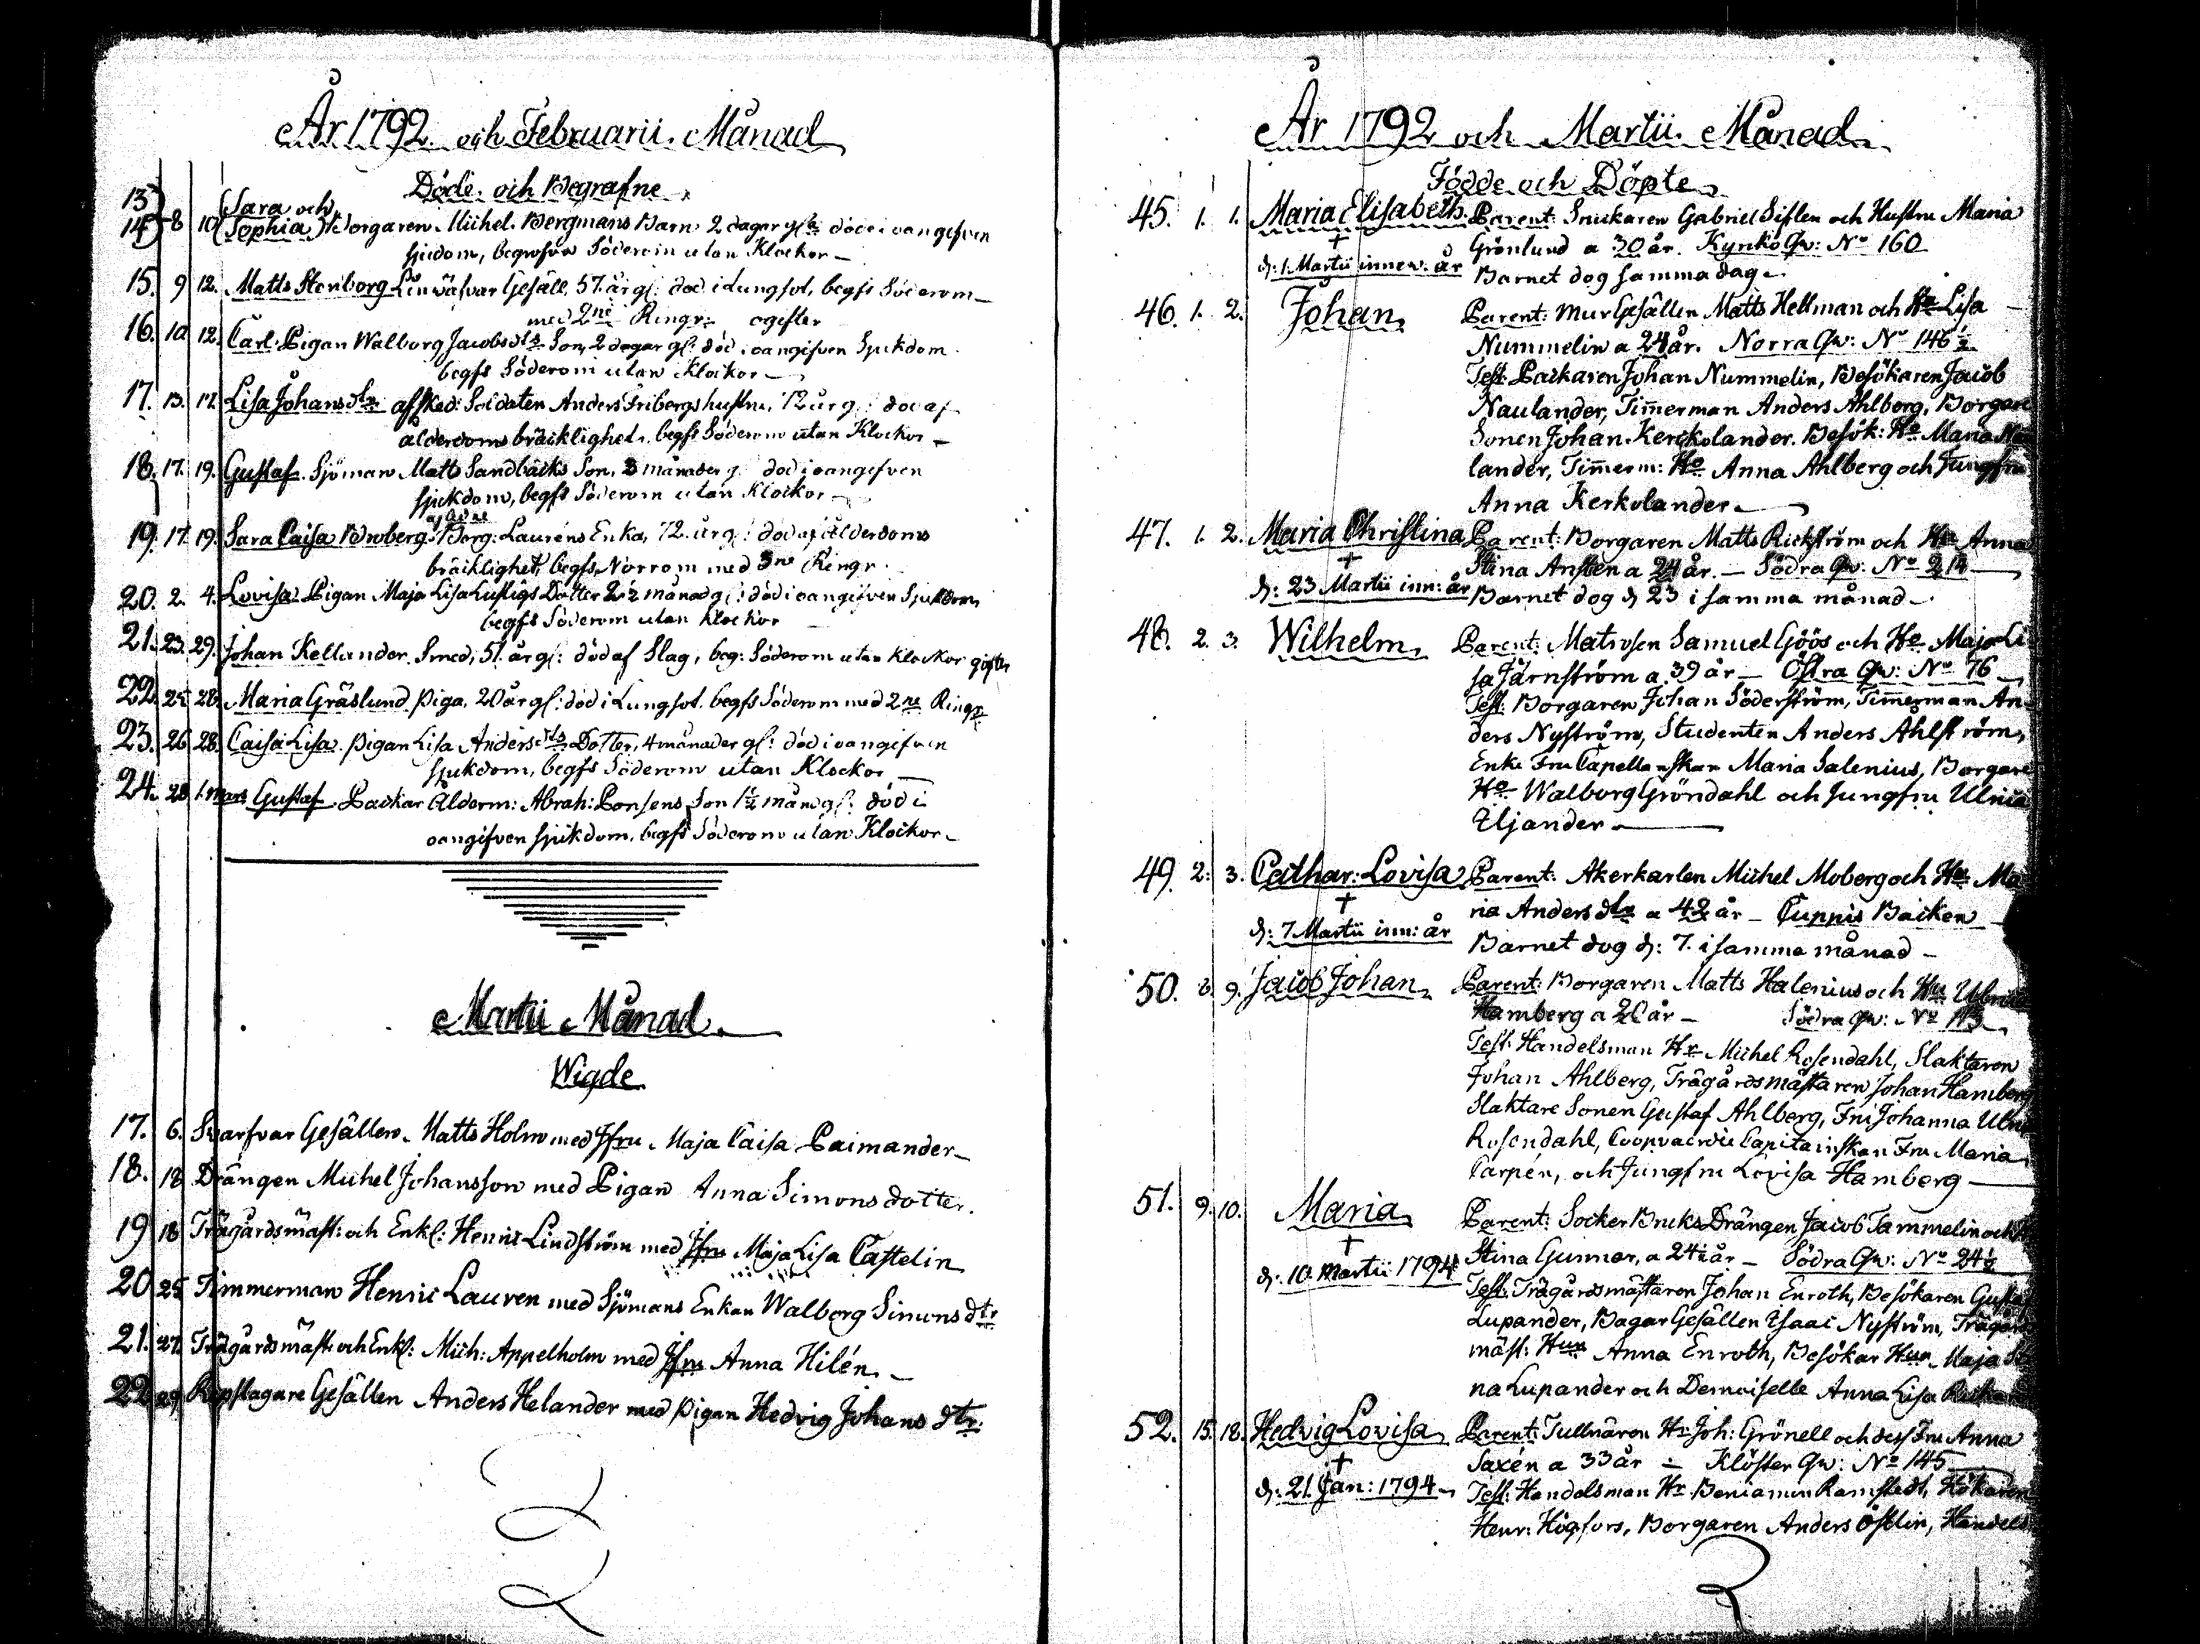 År 1792 och Februarii Månad
Döde och Begrafne
13. Sara och
14. 8 10 Sophia Borgaren Michel Bergmans Barn 2 dagar gl: döde i oangifven
sjudom, begrofvos Söderom utan Klockor
15. 9 12. Matts Stenborg Linwäfvar Gesäll, 57 år gl: död i Lungsot, begfs Söderom
med 2ne Ringr: ogifter
16. 10 12. Carl. Pigan Walborg Jacobs dtr Son, 2 dagar gl: död i oangifven Sjukdom
begfs Söderom utan Klockor
17. 13. 17. Lisa Johans dtr afsked: Soldaten Anders Fribergs hustru, 72 år gl: död af
ålderdoms bräcklighet, begfs Söderom utan Klockor
18. 17. 19. Gustaf. Sjöman Matts Sandbäcks Son, 3 månader gl: död i oangifven
sjukdom, begfs Söderom utan Klockor
19. 17. 19. Sara Caisa Broberg. Borg: Laurens Enka, 72 år gl: död af ålderdoms
bräcklighet, begfs Norrom med 3ne Ringr.
20. 2. 4. Lovisa Pigan Maja Lisa Lustigs Dotter 2 1/2 månad gl: död i oangifven Sjukdom
begfs Söderom utan Klockor
21. 23. 29. Johan Kellander. Smed, 51 år gl: död af Slag, beg: Söderom utan Klockor gifter
22. 25 28. Maria Gräslund. Piga, 20 år gl: död i Lungsot, begfs Söderom med 2ne Ringr
23. 26 28. Caisa Lisa. Pigan Lisa Anders dtr Dotter, 4 månader gl: död i oangifven
Sjukdom, begfs Söderom utan Klockor
24. 28 1. mars Gustaf Packar Ålderm: Abrah: Ponsens Son 1 1/2 mån gl: död i
oangifven sjukdom, begfs Söderom utan Klockor
Martii Månad.
Wigde
17. 6. Svarfvar Gesällen Matts Holm med Jfru Maja Caisa Paimander
18. 18 Drängen Michel Johansson med Pigan Anna Simons dotter.
19 18 Trägårdsmäst: och Enkl: Henric Lindström med Jfru Maja Lisa Castelin
20 25 Timmerman Henric Lauren med Sjömans Enkan Walborg Simons dtr
21. 27. Trägårdsmäst: och Enkl: Mich: Appelholm med Jfru Anna Hilén
22 29 Repslagare Gesällen Anders Helander med Pigan Hedvig Johans dtr:
År 1792 och Martii Månad
Födde och Döpte
45. 1. 1. Maria Elisabeth. Parent: Snickaren Gabriel Siflen och Hustru Maria
Grönlund a 30 år. Kyrkö Qv: No 160
d: 1. Martii innev: år Barnet dog samma dag
46. 1. 2. Johan Parent: Mur Gesällen Matts Hellman och Ho Lisa
Nummelin a 24 år. Norra Qv: No 146 1/2
Test: Packaren Johan Nummelin, Besökaren Jacob
Naulander, Timmerman Anders Ahlberg, Borgare
Sonen Johan Kerckolander. Besök: Ho Maria
lander, Timmerm: Ho Anna Ahlberg och Jungfru
Anna Kerkolander
47. 1. 2. Maria Christina Parent: Borgaren Matts Rickström och Hu Anna
Stina Ansten a 24 år. Södra Qv: No
d: 23 Martii inn: år Barnet dog d 23 i samma månad
48. 2. 3. Wilhelm Parent: Matrosen Samuel Göös och Ho Maja Li
sa Järnström a 39 år Östra Qv: No 76
Test: Borgaren Johan Söderström, Timmerman An
ders Nyström, Studenten Anders Ahlström,
Enke Fru Capellanskan Maria Salenius, Borgare
Ho Walborg Gröndahl och Jungfru Ulrica
Iljander
49. 2. 3. Cathar: Lovisa Parent: Åkerkarlen Michel Moberg och Hu Ma
ria Anders dtr a 42 år Cuppis Backen
d: 7. Martii inn: år Barnet dog d: 7. i samma månad
50. 8. 9. Jacob Johan Parent: Borgaren Matts Halenius och Hu Ulrica
Hamberg a 20 år Södra Qv: No 113
Test: Handelsman Hr Michel Rosendahl, Slaktaren
Johan Ahlberg, Trägårdsmästaren Johan Hamberg
Slaktare Sonen Gustaf Ahlberg, Fru Johanna Ulri
Rosendahl, Coopvaerdie Capitainskan Fru Maria
Carpén, och Jungfru Lovisa Hamberg
51. 9. 10. Maria Parent: Socker Bruks Drängen Jacob Tammelin och H
Stina Gunnar, a 24 1/2 år Södra Qv: No 24 1/2
d: 10 Martii 1794 Test: Trägårdsmästaren Johan Enroth, Besökaren Gustaf
Lupander, Bagar Gesällen Isaac Nyström, Trägårds
mäst: Hun Anna Enroth, Besökar Hun Maja Sti
na Lupander och Demoiselle Anna Lisa
52. 15. 18. Hedvig Lovisa Parent: Tullnären Hr Joh: Grönell och dess Fru Anna
Saxén a 33 år Klöster Qv: No 145
d: 21. Jan: 1794 Test: Handelsman Hr Beniamin Ramstedt, Hökaren
Henr: Högfors, Borgaren Anders Östlin, Handels